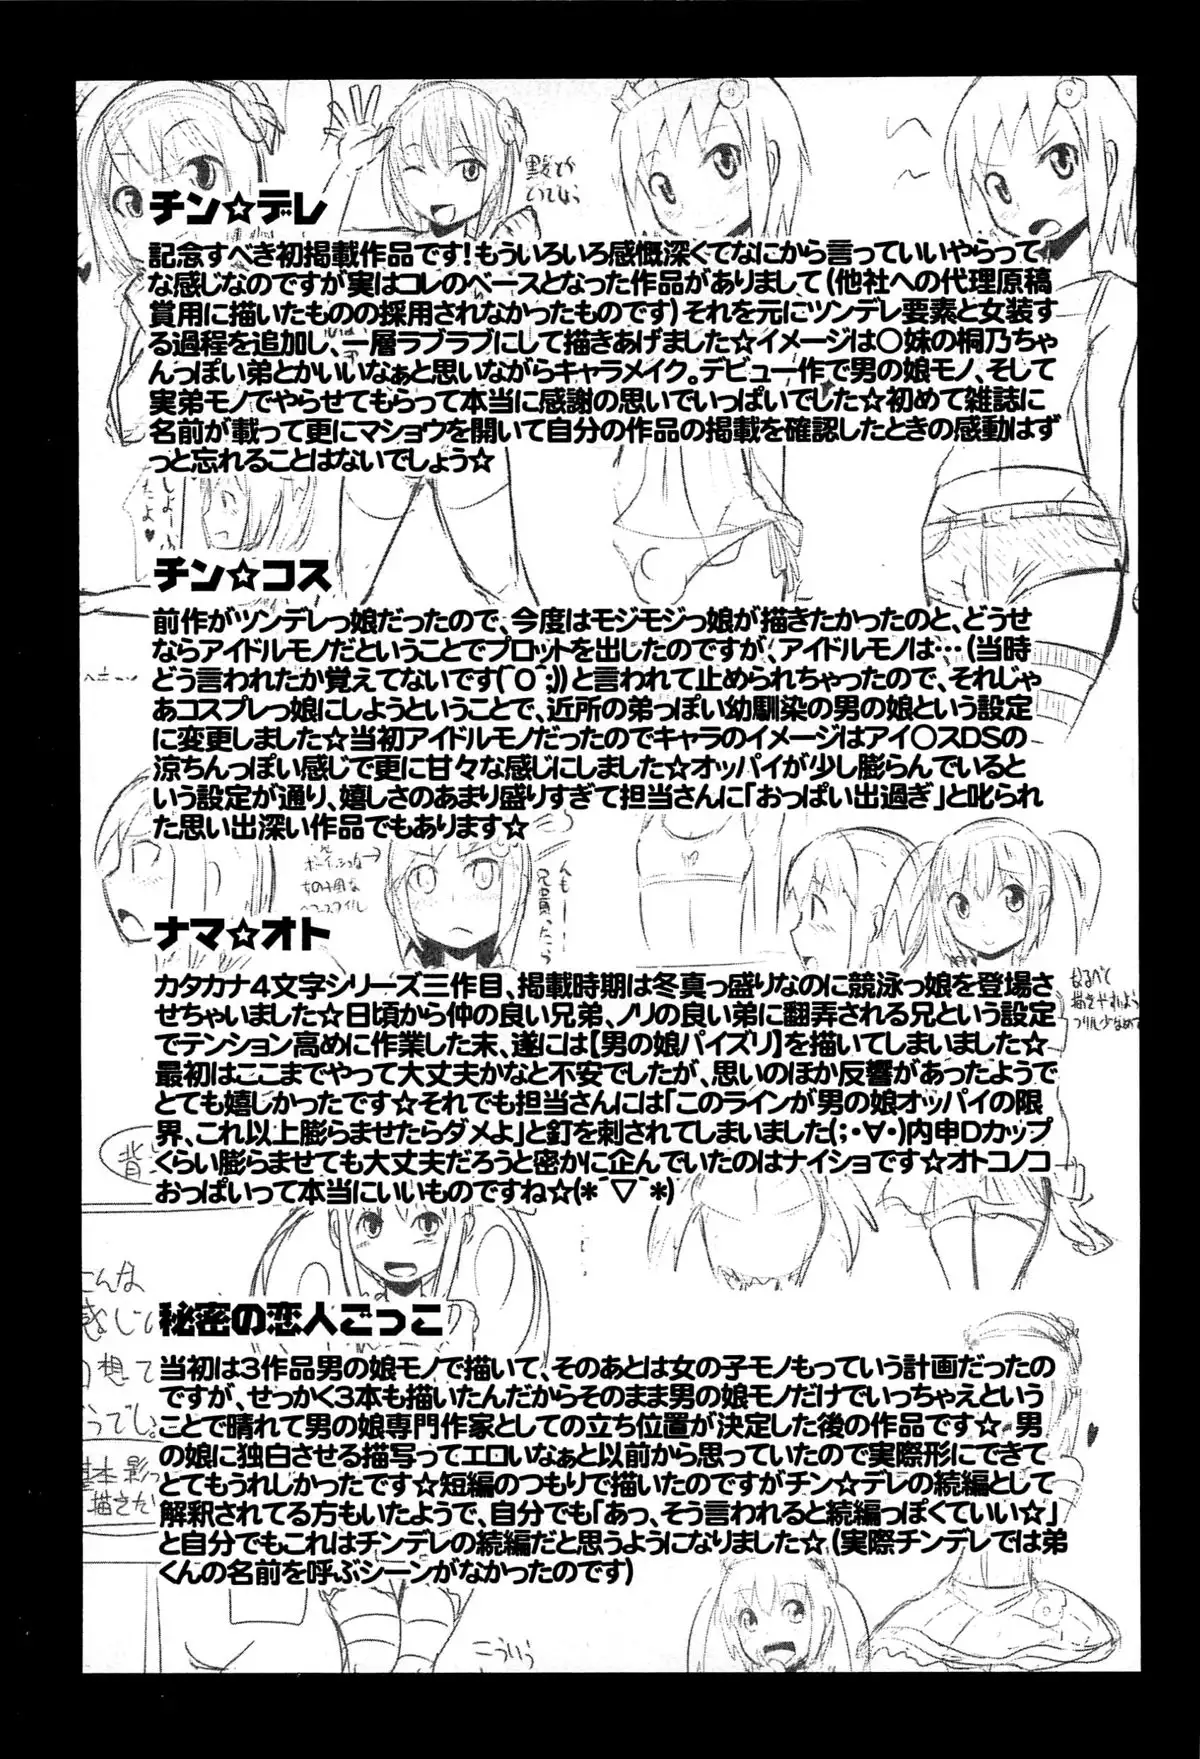 チン☆デレ
記念すべき初掲載作品です！もういろいろ感慨深くてなにから言っていいやらって
な感じなのですが実はコレのベースとなった作品がありまして（他社への代理原稿
賞用に描いたものの採用されなかったものです）それを元にツンデレ要素と女装す
る過程を追加し、一層ラブラブにして描きあげました☆イメージは〇妹の桐乃ちゃ
んっぽい弟とかいいなぁと思いながらキャラメイク。デビュー作で男の娘モノ、そして
実弟モノでやらせてもらって本当に感謝の思いでいっぱいでした☆初めて雑誌に
名前が載って更にマショウを開いて自分の作品の掲載を確認したときの感動はず
っと忘れることはないでしょう☆
チン☆コス
前作がツンデレっ娘だったので、今度はモジモジっ娘が描きたかったのと、どうせ
ならアイドルモノだということでプロットを出したのですが、アイドルモノは…（当時
どう言われたか覚えてないです(´Ο｀;)）と言われて止められちゃったので、それじゃ
あコスプレっ娘にしようということで、近所の弟っぽい幼馴染の男の娘という設定
に変更しました☆当初アイドルモノだったのでキャラのイメージはアイ〇スDSの
涼ちんっぽい感じで更に甘々な感じにしました☆オッパイが少し膨らんでいると
いう設定が通り、嬉しさのあまり盛りすぎて担当さんに「おっぱい出過ぎ」と叱られ
た思い出深い作品でもあります☆
ナマ☆オト
カタカナ4文字シリーズ三作目、掲載時期は冬真っ盛りなのに競泳っ娘を登場さ
せちゃいました☆日頃から仲の良い兄弟、ノリの良い弟に翻弄される兄という設定
でテンション高めに作業した末、遂には【男の娘パイズリ】を描いてしまいました☆
最初はここまでやって大丈夫かなと不安でしたが、思いのほか反響があったようで
とても嬉しかったです☆それでも担当さんには「このラインが男の娘オッパイの限
界、これ以上膨らませたらダメよ」と釘を刺されてしまいました(;・∀・)内申Dカップ
くらい膨らませても大丈夫だろうと密かに企んでいたのはナイショです☆オトコノコ
おっぱいって本当にいいものですね☆(*´▽｀*)
秘密の恋人ごっこ
当初は3作品男の娘モノで描いて、そのあとは女の子モノもっていう計画だったの
ですが、せっかく3本も描いたんだからそのまま男の娘モノだけでいっちゃえという
ことで晴れて男の娘専門作家としての立ち位置が決定した後の作品です☆ 男
の娘に独白させる描写ってエロいなぁと以前から思っていたので実際形にできて
とてもうれしかったです☆短編のつもりで描いたのですがチン☆デレの続編として
解釈されてる方もいたようで、自分でも「あっ、そう言われると続編っぽくていい☆」
と自分でもこれはチンデレの続編だと思うようになりました☆（実際チンデレでは弟
くんの名前を呼ぶシーンがなかったのです）
こんな
感じ
想て
描きた
なるべく
こういう